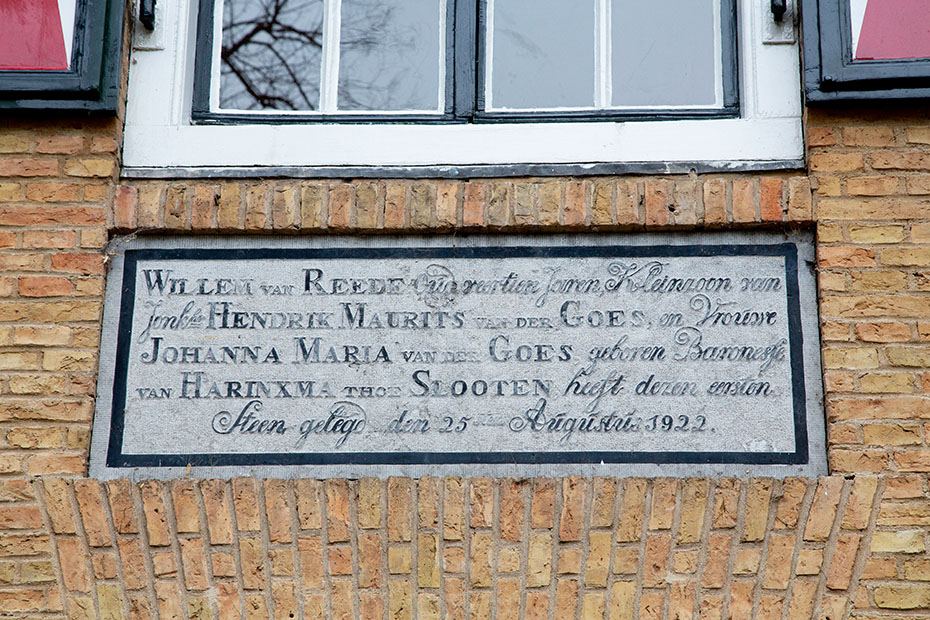 WILLEM VAN REEDE Oud veertien Jaren, Kleinzoon van
Jonkhr. HENDRIK MAURITS VAN DER GOES, en Vrouwe
JOHANNA MARIA VAN DER GOES geboren Baronesse
VAN HARINXMA THOE SLOOTEN heeft dezen eersten
Steen gelegd den 25sten Augustus 1922.